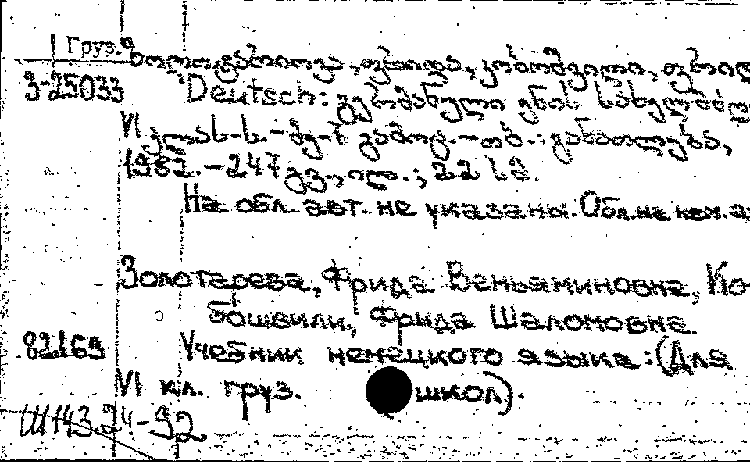 Груз.
ფრიდა, კობოშვილი, ფრიდ
3-25033
Deutsch: გერმანული ენის სახელმძღ
VI კლას-ს. - მე-
გამოც. - თბ.: განათლება,
1982. - 247 გვ., ილ.; 22 სმ.
На обл. авт. не указаны. Обл. на нем. яз
Золотарева, Фрида Веньаминовна, Ко-
бошвили, Фрида Шаломовна.
82169
Учебник немецкого языка: (Для
VI кл. груз. школ).
Ш143.24-92